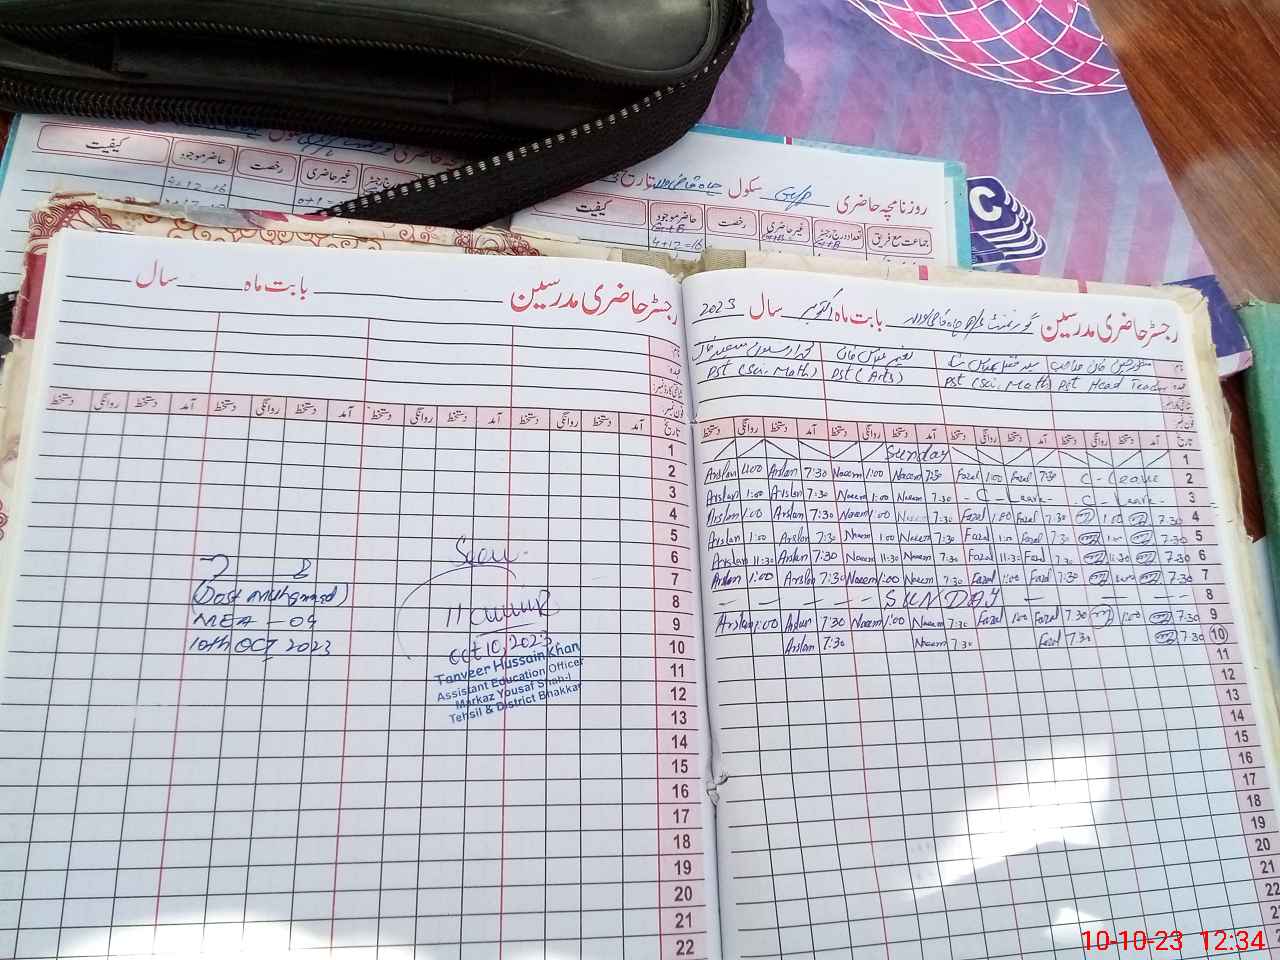 روزنامچہ حاضری سکول تاریخ
کیفیت حاضر موجود رخصت غیرحاضری
جماعت مع فریق تعداد درج رجسٹر غیرحاضری رخصت حاضر موجود کیفیت
4+12=16
C
رجسٹر حاضری مدرسین بابت ماہ سال
نام
عہدہ
شناختی کارڈ نمبر:
فون نمبر:
تاریخ آمد دستخط روانگی دستخط آمد دستخط روانگی دستخط آمد دستخط روانگی دستخط آمد دستخط روانگی دستخط
1
2
3
4
5
6
7
8
9
10
11
12
13
14
15
16
17
18
19
20
21
22
Seen
(Dost Muhammad)
MEA - 09
10th OCT 2023
Oct 10, 2023
Tanveer Hussain Khan
Assistant Education Officer
Markaz Yousaf Shah-I
Tehsil & District Bhakkar
رجسٹر حاضری مدرسین گورنمنٹ بابت ماہ اکتوبر سال 2023
نام
عہدہ PST Head Teacher PST (Sci. Math) PST (Arts) PST (Sci. Math)
تاریخ آمد دستخط روانگی دستخط آمد دستخط روانگی دستخط آمد دستخط روانگی دستخط آمد دستخط روانگی دستخط
Sunday 1
Arslan 1:00 Arslan 7:30 Naeem 1:00 Naeem 7:30 Fazal 1:00 Fazal 7:30 C - Leave 2
Arslan 1:00 Arslan 7:30 Naeem 1:00 Naeem 7:30 - C - Leave - C - Leave - 3
Arslan 1:00 Arslan 7:30 Naeem 1:00 Naeem 7:30 Fazal 1:00 Fazal 7:30 1:00 7:30 4
Arslan 1:00 Arslan 7:30 Naeem 1:00 Naeem 7:30 Fazal 1:00 Fazal 7:30 1:00 7:30 5
Arslan 11:30 Arslan 7:30 Naeem 11:30 Naeem 7:30 Fazal 11:30 Fazal 7:30 11:30 7:30 6
Arslan 1:00 Arslan 7:30 Naeem 1:00 Naeem 7:30 Fazal 1:00 Fazal 7:30 1:00 7:30 7
SUNDAY 8
Arslan 1:00 Arslan 7:30 Naeem 1:00 Naeem 7:30 Fazal 1:00 Fazal 7:30 1:00 7:30 9
Arslan 7:30 Naeem 7:30 Fazal 7:30 7:30 10
11
12
13
14
15
16
17
18
19
20
21
22
10-10-23 12:34